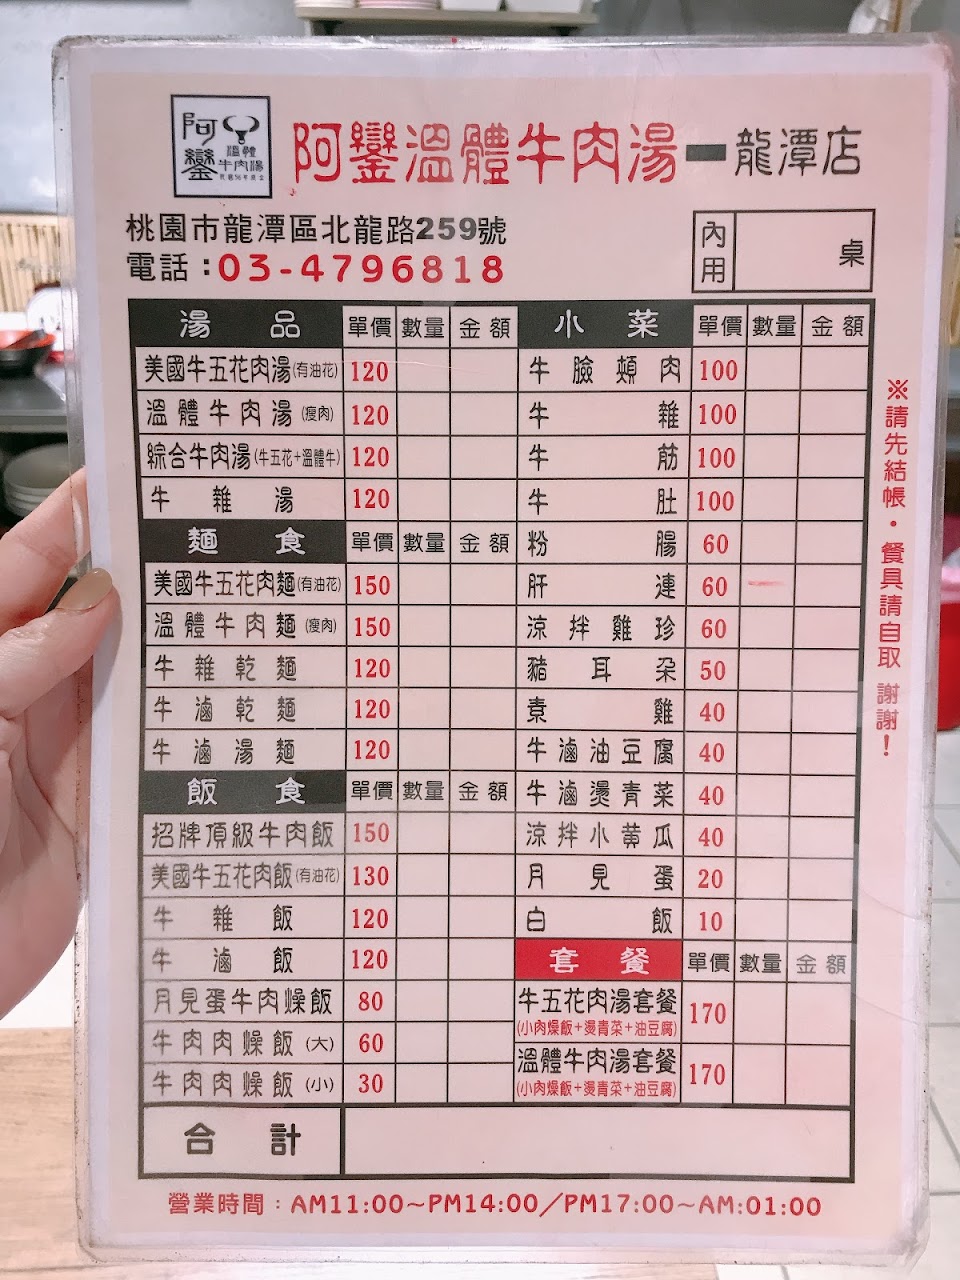 阿鑾
溫體
牛肉湯
阿鑾溫體牛肉湯－龍潭店
桃園市龍潭區北龍路259號
電話：03-4796818
內用 桌
湯品 單價 數量 金額
美國牛五花肉湯(有油花) 120
溫體牛肉湯(瘦肉) 120
綜合牛肉湯(牛五花+溫體牛) 120
牛雜湯 120
麵食 單價 數量 金額
美國牛五花肉麵(有油花) 150
溫體牛肉麵(瘦肉) 150
牛雜乾麵 120
牛滷乾麵 120
牛滷湯麵 120
飯食 單價 數量 金額
招牌頂級牛肉飯 150
美國牛五花肉飯(有油花) 130
牛雜飯 120
牛滷飯 120
月見蛋牛肉燥飯 80
牛肉肉燥飯(大) 60
牛肉肉燥飯(小) 30
小菜 單價 數量 金額
牛臉頰肉 100
牛雜 100
牛筋 100
牛肚 100
粉腸 60
肝連 60
涼拌雞珍 60
豬耳朵 50
素雞 40
牛滷油豆腐 40
牛滷燙青菜 40
涼拌小黃瓜 40
月見蛋 20
白飯 10
套餐 單價 數量 金額
牛五花肉湯套餐 170
(小肉燥飯+燙青菜+油豆腐)
溫體牛肉湯套餐 170
(小肉燥飯+燙青菜+油豆腐)
合計
※請先結帳・餐具請自取 謝謝！
營業時間：AM11:00~PM14:00／PM17:00~AM:01:00